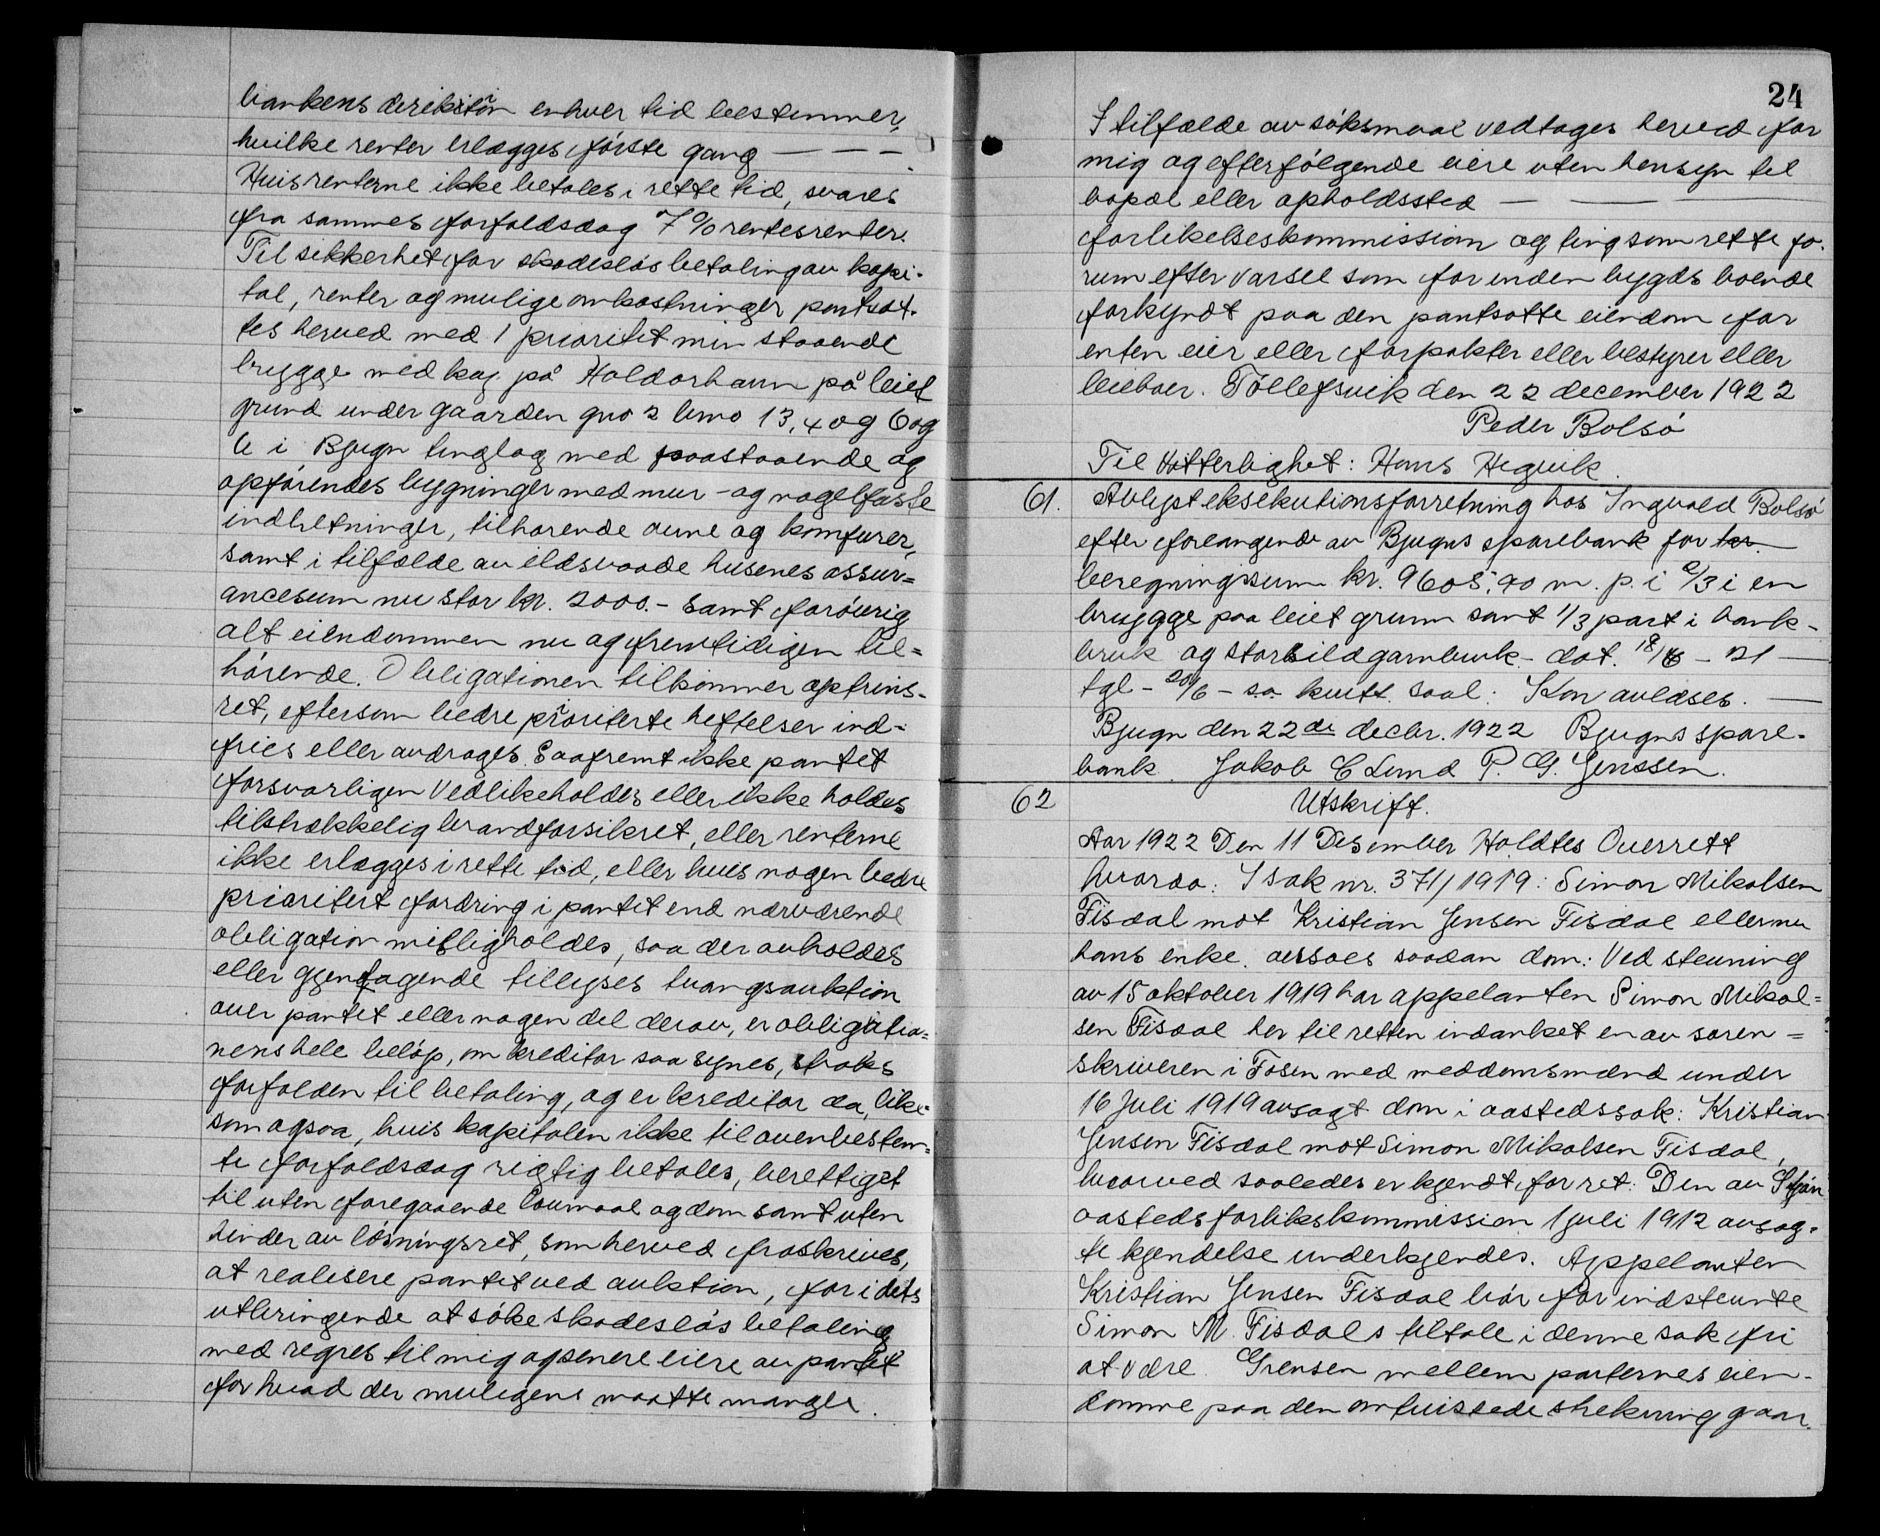 bankens direktion enhver tid bestemmer,
hvilke renter erlægges første gang — — —
Hvis renterne ikke betales i rette tid, svares
fra sammes forfaldsdag 7 % rentesrenter.
Til sikkerhet for skadesløs betaling av kapi-
tal, renter og mulige omkostninger pantsæt-
tes herved med 1 prioritet min staaende
brygge med kaj på Haldorhavn på leiet
grund under gaarden gno 2 bno 13, 4 og 6 og
b i Bjugn tinglag med paastaaende og
opførendes bygninger med mur- og nagelfaste
indretninger, tilhørende ovne og komfurer,
samt i tilfælde av ildsvaade husenes assur=
ancesum nu stor kr. 2000.- samt forøvrig
alt eiendommen nu og fremtidigen til=
hørende. Obligationen tilkommer optrins-
ret, eftersom bedre prioriterte heftelser ind-
fries eller avdrages. Saafremt ikke pantet
forsvarligen vedlikeholdes eller ikke holdes
tilstrækkelig brandforsikret, eller renterne
ikke erlægges i rette tid, eller hvis nogen bedre
prioritert fordring i pantet end nærværende
obligation misligholdes, saa der avholdes
eller gjentagende tillyses tvangsauktion
over pantet eller nogen del derav, er obligatio=
nens hele beløp, om kreditor saa synes, straks
forfalden til betaling, og er kreditor da, like-
som ogsaa, hvis kapitalen ikke til ovenbestem-
te forfaldsdag rigtig betales, berettiget
til uten foregaaende lovmaal og dom samt uten
hinder av løsningsret, som herved fraskrives,
at realisere pantet ved auktion, for i dets
utbringende at søke skadesløs betaling
med regres til mig og senere eiere av pantet
for hvad der muligens maatte mangle.
24
I tilfælde av søksmaal vedtages herved for
mig og efterfølgende eiere uten hensyn til
bopæl eller opholdssted — — —
forlikelseskommission og ting som rette fo-
rum efter varsel som for inden bygds boende
forkyndt paa den pantsatte eiendom for
enten eier eller forpakter eller bestyrer eller
leieboer. Tøllefsvik den 22 december 1922
Peder Bolsø
Til Vitterlighet: Hans Hegvik.
61. Avlyst eksekutionsforretning hos Ingvald Bolsø
efter forlangende av Bjugns sparebank for kr.
beregningssum kr. 9605,90 m. p. i 2/3 i en
brygge paa leiet grunn samt 1/3 part i bank-
bruk og storsildgarnbruk dat. 18/6 - 21 —
tgl - 20/6 - s.a. kvitt. saal: Kan avlæses. —
Bjugn den 22de decbr. 1922 Bjugns spare-
bank. Jakob C Lund P. G. Jenssen.
62 Utskrift.
Aar 1922 Den 11 Desember Holdtes Overrett
hvorda: I sak nr. 371/1919: Simon Mikalsen
Fisdal mot Kristian Jensen Fisdal eller nu
hans enke. avsaes saadan dom: Ved stevning
av 15 oktober 1919 har appelanten Simon Mikal=
sen Fisdal her til retten indanket en av soren=
skriveren i Fosen med meddomsmænd under
16 Juli 1919 avsagt dom i aastedssak: Kristian
Jensen Fisdal mot Simon Mikalsen Fisdal,
hvorved saaledes er kjendt for ret: Den av Stjørn
aastedsforlikskommission 1 juli 1912 avsag-
te kjendelse underkjendes. Appelanten
Kristian Jensen Fisdal bør for indstevnte
Simon M. Fisdals tiltale i denne sak fri
at være. Grensen mellem parternes eien-
domme paa den omtvistede strekning gaar